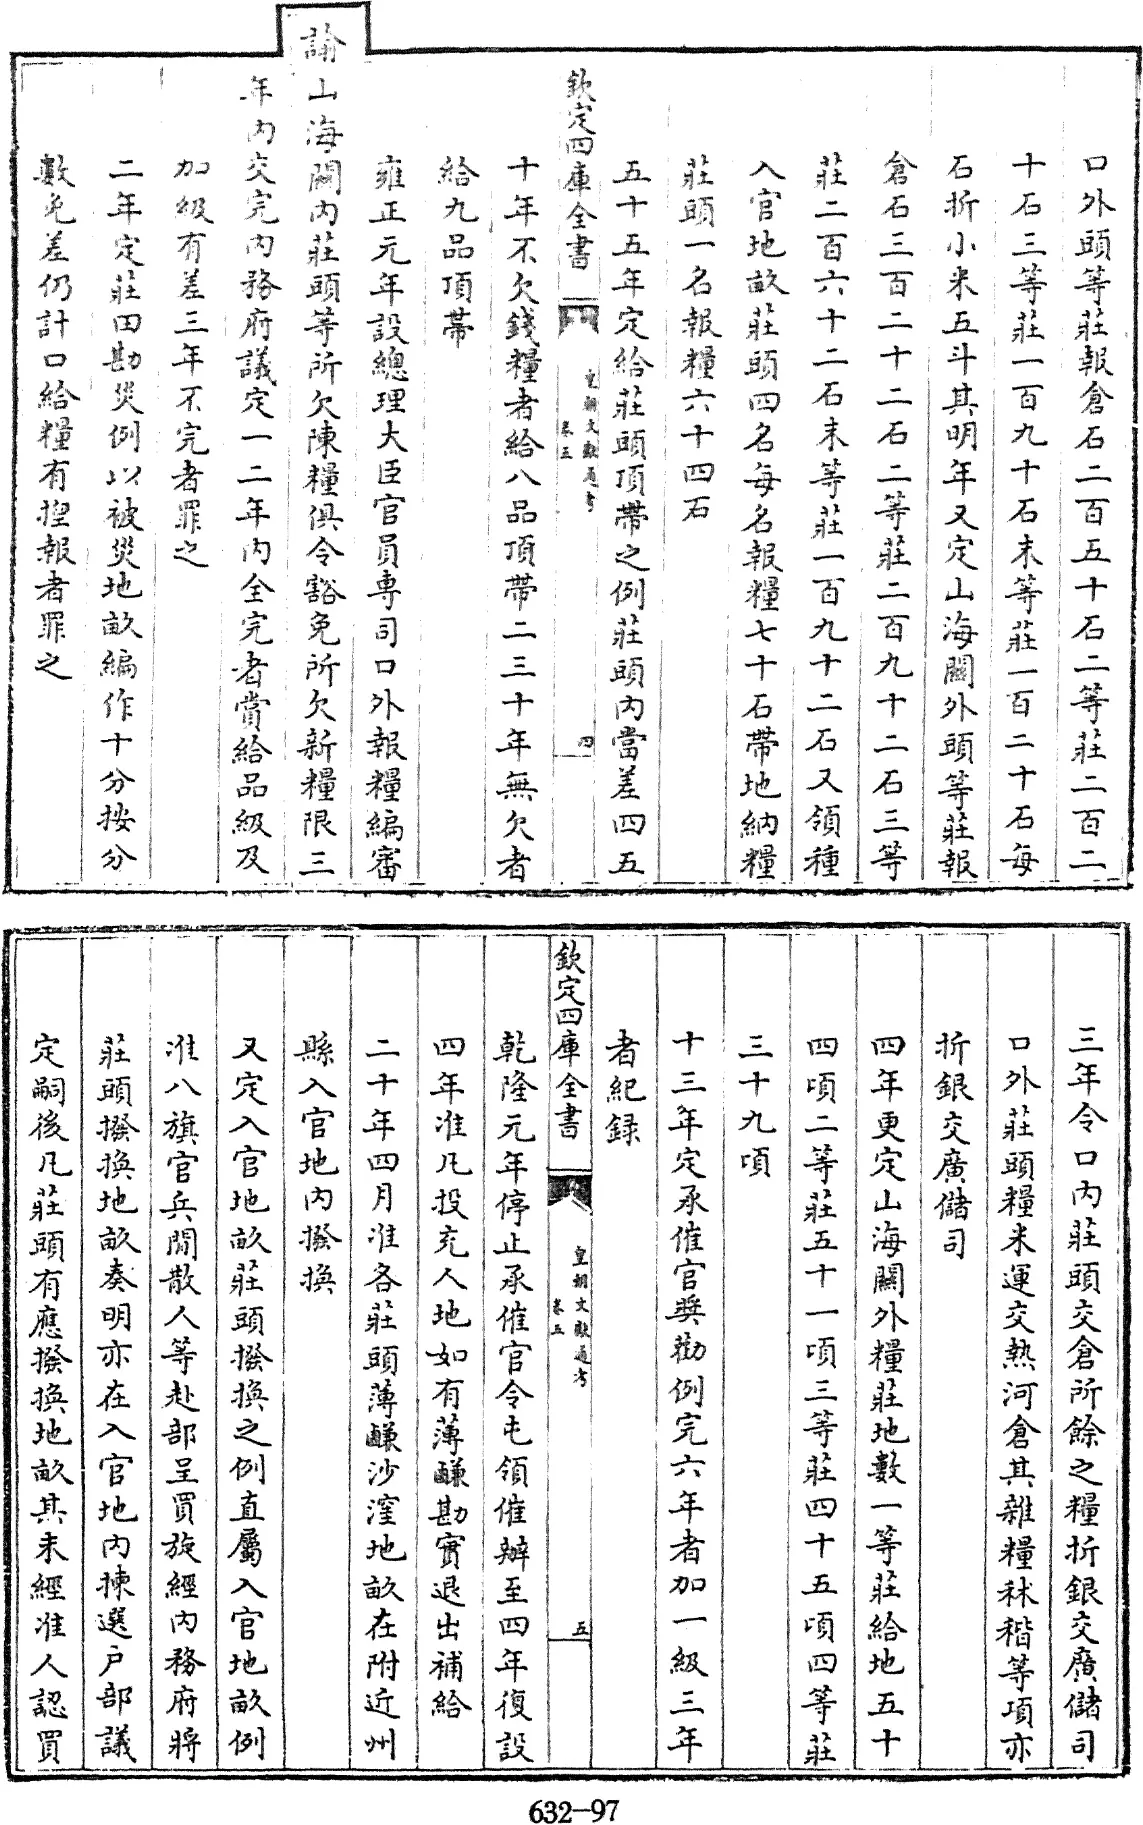 口外頭等莊報倉石二百五十石二等莊二百二
十石三等莊一百九十石末等莊一百二十石每
石折小米五斗其明年又定山海關外頭等莊報
倉石三百二十二石二等莊二百九十二石三等
莊二百六十二石末等莊一百九十二石又領種
入官地畝莊頭四名每名報糧七十石帶地納糧
莊頭一名報糧六十四石
五十五年定給莊頭頂帶之例莊頭內當差四五
欽定四庫全書
皇朝文獻通考
卷五
四
十年不欠錢糧者給八品頂帶二三十年無欠者
給九品頂帶
雍正元年設總理大臣官員專司口外報糧編審
諭山海關內莊頭等所欠陳糧俱令豁免所欠新糧限三
年內交完內務府議定一二年內全完者賞給品級及
加級有差三年不完者罪之
二年定莊田勘災例以被災地畝編作十分按分
數免差仍計口給糧有捏報者罪之
三年令口內莊頭交倉所餘之糧折銀交廣儲司
口外莊頭糧米運交熱河倉其雜糧秫稭等項亦
折銀交廣儲司
四年更定山海關外糧莊地數一等莊給地五十
四頃二等莊五十一頃三等莊四十五頃四等莊
三十九頃
十三年定承催官獎勸例完六年者加一級三年
者紀錄
欽定四庫全書
皇朝文獻通考
卷五
五
乾隆元年停止承催官令屯領催辦至四年復設
四年准凡投充人地如有薄鹻勘實退出補給
二十年四月准各莊頭薄鹻沙漥地畝在附近州
縣入官地內撥換
又定入官地畝莊頭撥換之例直屬入官地畝例
准八旗官兵閒散人等赴部呈買旋經內務府將
莊頭撥換地畝奏明亦在入官地內揀選戶部議
定嗣後凡莊頭有應撥換地畝其未經准人認買
632-97